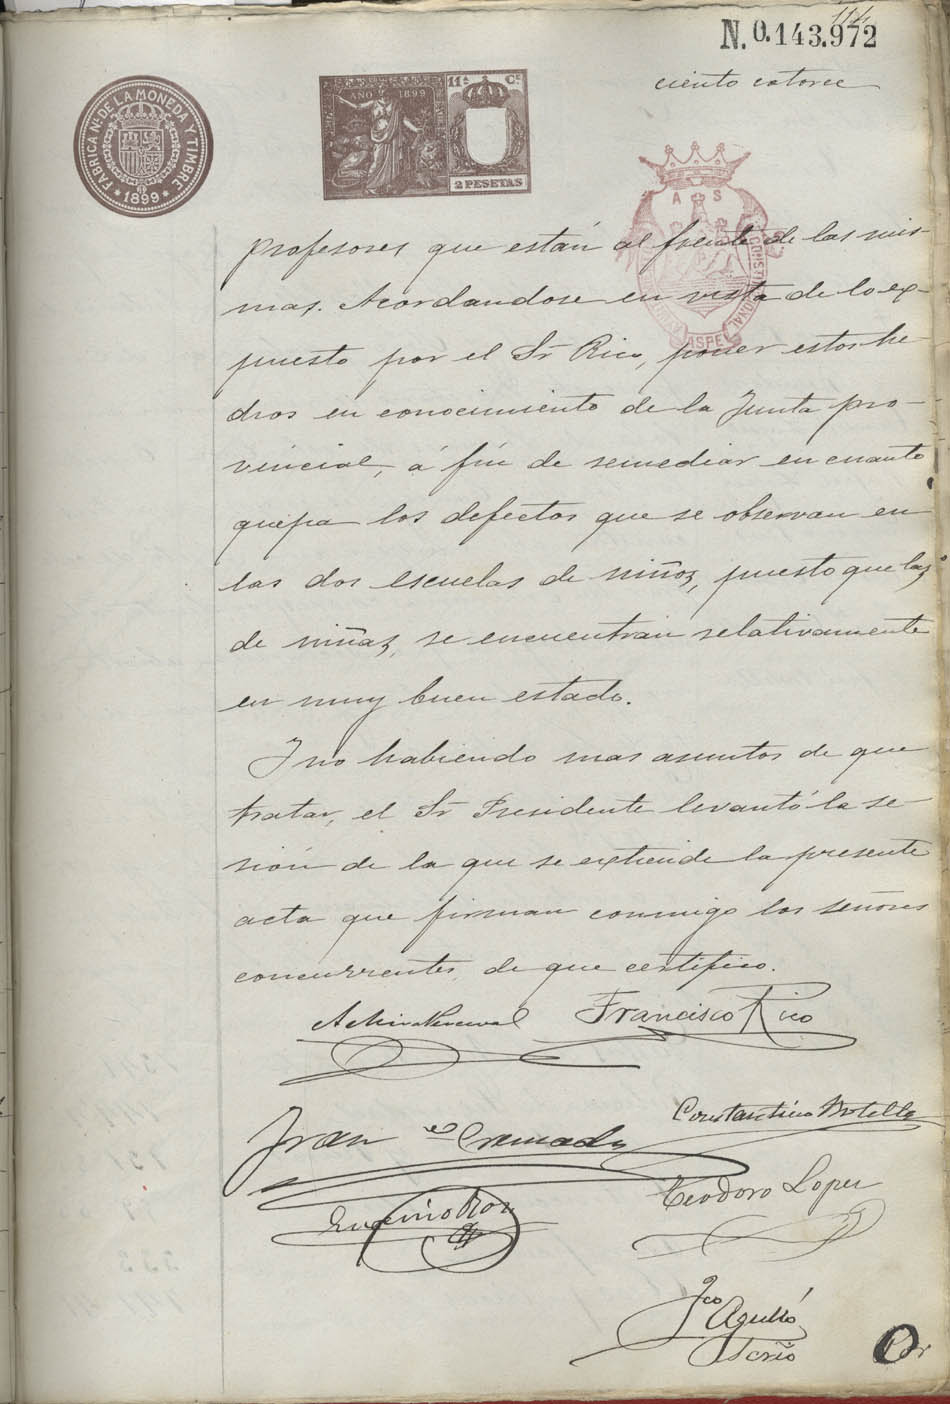 114
N. 0.143.972
ciento catorce
FABRICA NL. DE LA MONEDA Y TIMBRE
* 1899 *
AÑO 1899
11ª Cª
2 PESETAS
A S
CONSTITUCIONAL
ASPE
profesores que están al frente de las mis-
mas. Acordandose en vista de lo ex-
puesto por el Sr Rico, poner estos he
chos en conocimiento de la Junta pro-
vincial, á fin de remediar en cuanto
quepa los defectos que se observan en
las dos escuelas de niños, puesto que las
de niñas, se encuentran relativamente
en muy buen estado.
Y no habiendo mas asuntos de que
tratar, el Sr Presidente levantó la se-
sión de la que se extiende la presente
acta que firman conmigo los señores
concurrentes, de que certifico.
Francisco Rico
Constantino Botella
Fran co Cremades
Teodoro Lopez
Fco Agulló
Scrio